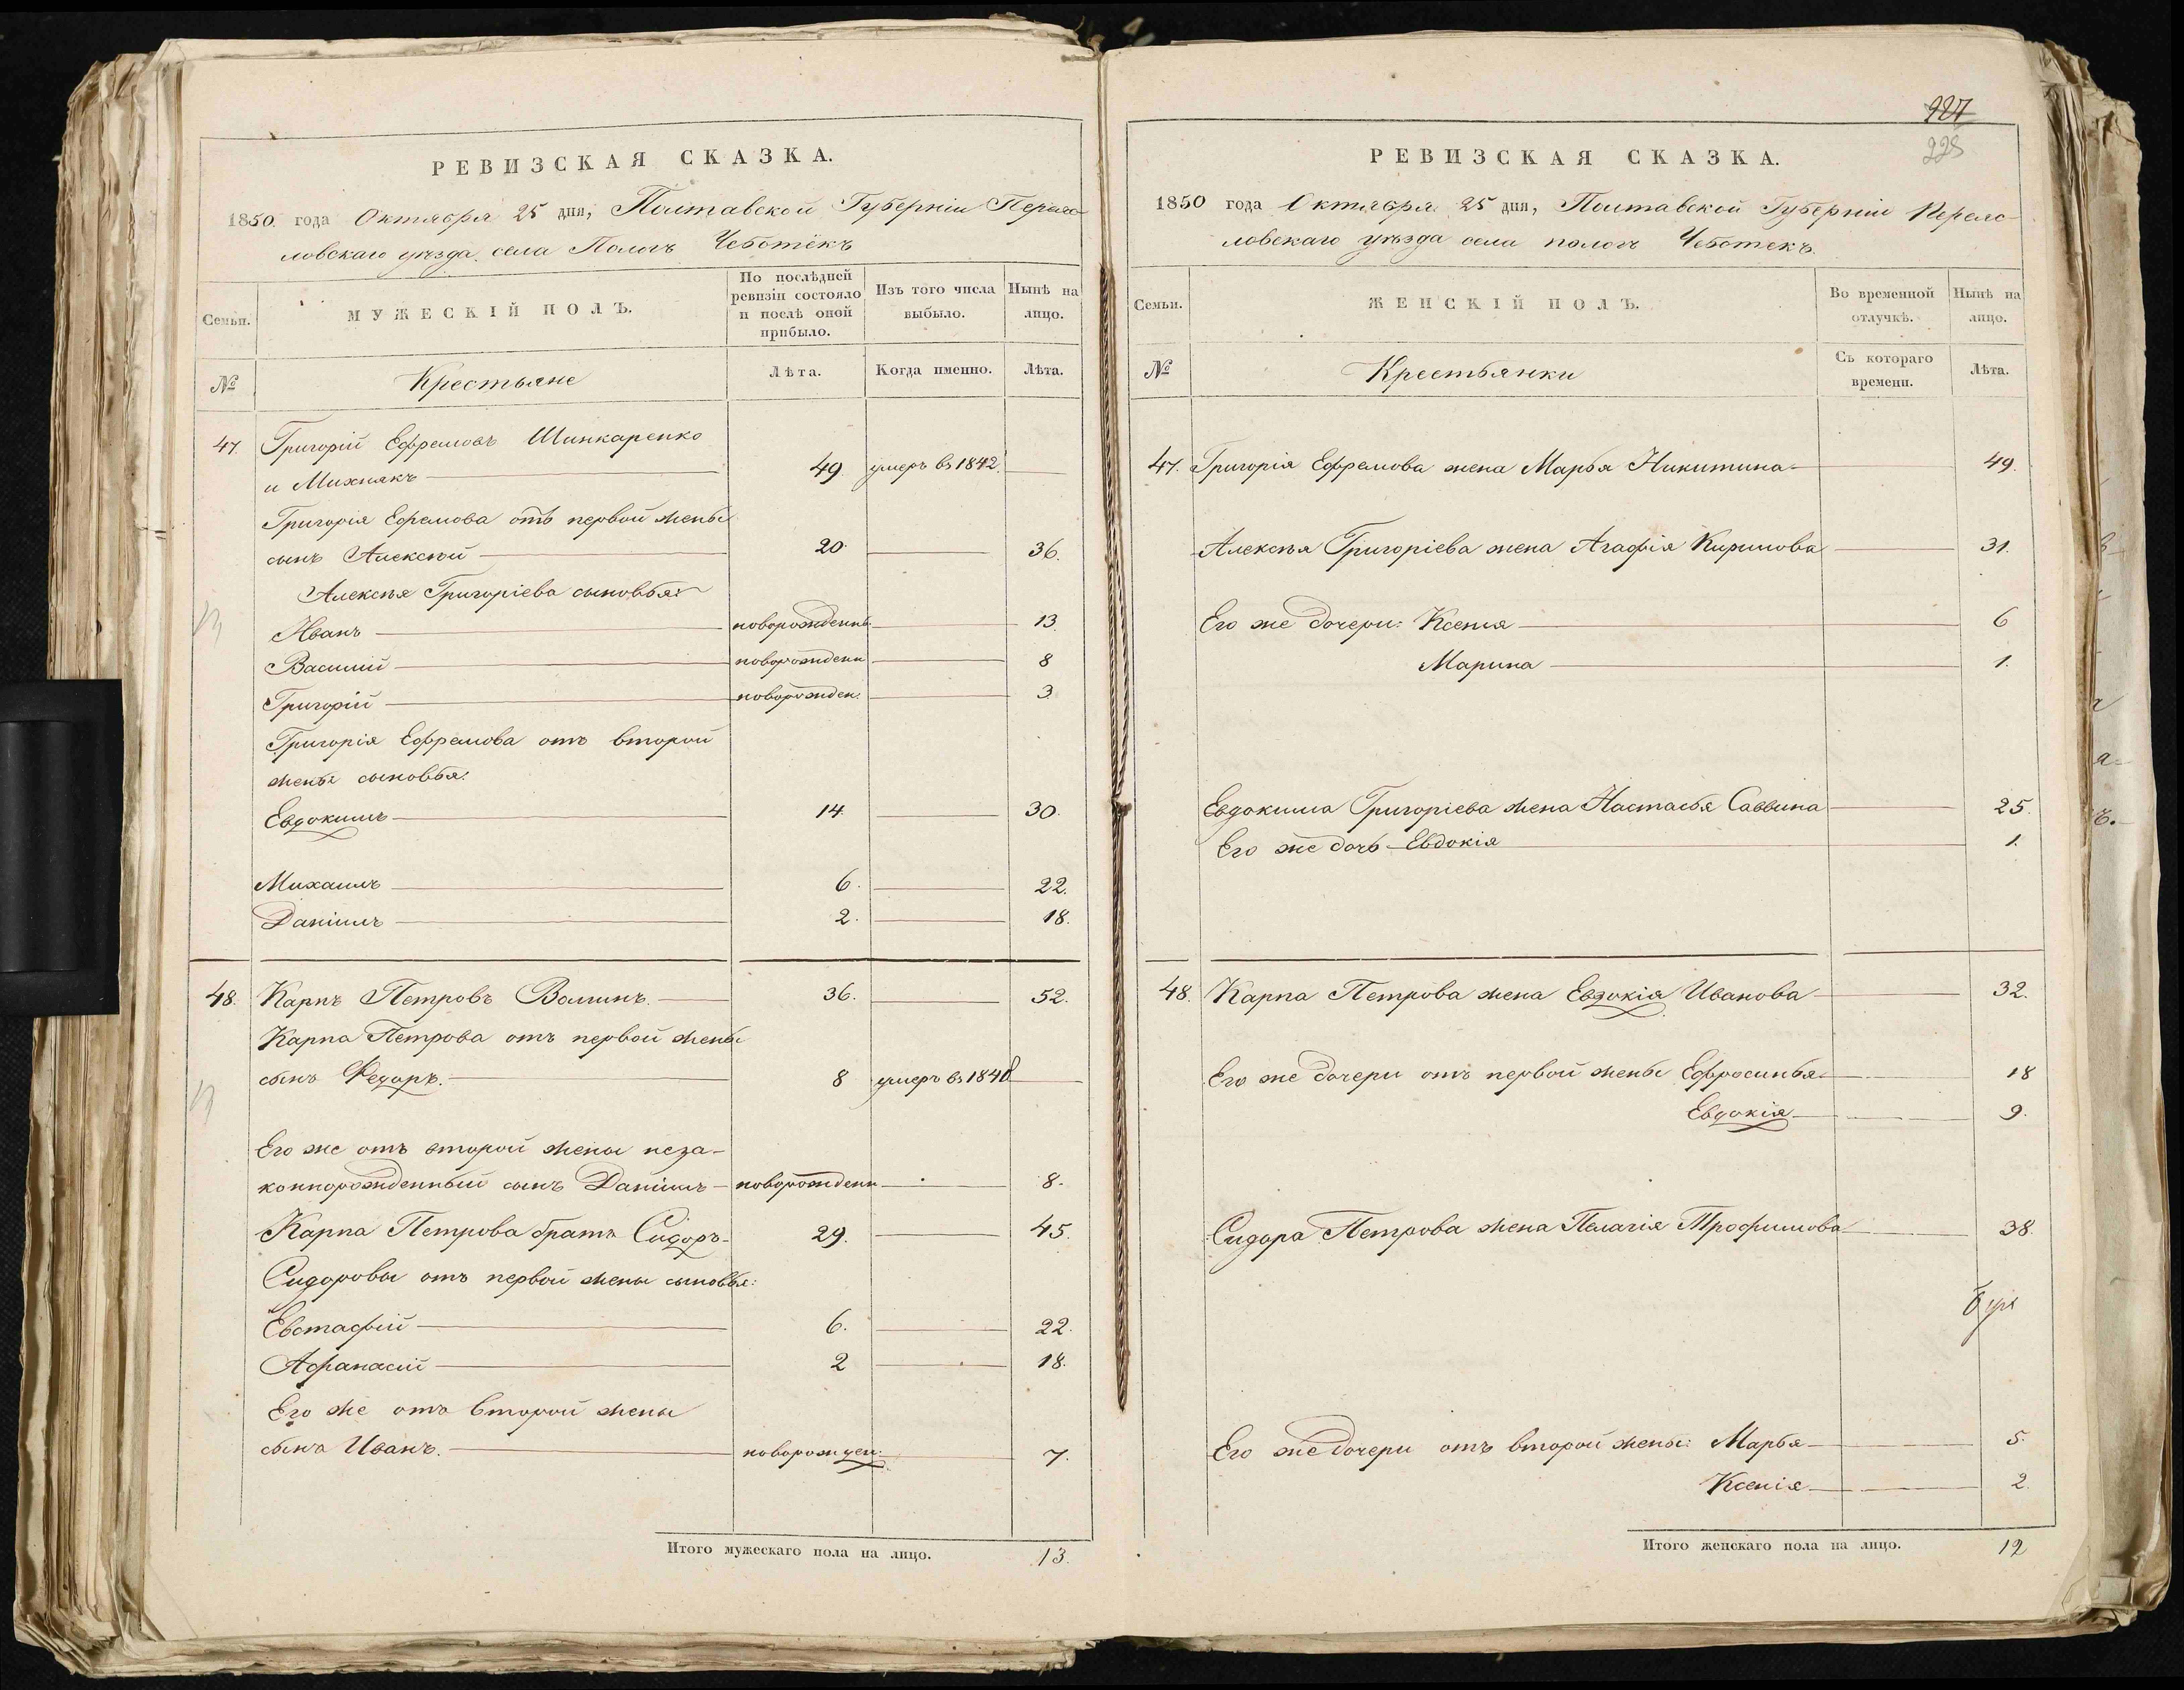 РЕВИЗСКАЯ СКАЗКА.
1850 года Октября 25 дня, Полтавской Губерніи Перено-
ловскаго уѣзда села Пологъ Чеботёкъ
Семьи. МУЖЕСКІЙ ПОЛЪ. По послѣдней ревизіи состояло и послѣ оной прибыло. Изъ того числа выбыло. Нынѣ на лицо.
№ Крестьяне Лѣта. Когда именно. Лѣта.
47. Григорій Ефремовъ Шинкаренко
и Михнякъ 49. умеръ въ 1842.
Григорія Ефремова отъ первой жены
сынъ Алексѣй 20. 36.
Алексѣя Григоріева сыновья:
Иванъ новорожденъ 13.
Василій новорожденъ 8
Григорій новорожден. 3
Григорія Ефремова отъ второй
жены сыновья:
Евдокимъ 14. 30.
Михаилъ 6. 22.
Даніилъ 2. 18.
48. Карпъ Петровъ Волинъ. 36. 52.
Карпа Петрова отъ первой жены
сынъ Федоръ. 8 умеръ въ 1848
Его же отъ второй жены неза-
коннорожденный сынъ Даніилъ новорожденъ 8.
Карпа Петрова братъ Сидоръ 29. 45.
Сидоровы отъ первой жены сыновья:
Евстафій 6. 22.
Афанасій 2 18.
Его же отъ второй жены
сынъ Иванъ. новорожден. 7.
Итого мужескаго пола на лицо. 13.
227
228
РЕВИЗСКАЯ СКАЗКА.
1850 года Октября 25 дня, Полтавской Губерніи Переяс-
ловскаго уѣзда села пологъ Чеботекъ.
Семьи. ЖЕНСКІЙ ПОЛЪ. Во временной отлучкѣ. Нынѣ на лицо.
№ Крестьянки Съ котораго времени. Лѣта.
47. Григорія Ефремова жена Марья Никитина 49.
Алексѣя Григоріева жена Агафія Кирилова 31.
Его же дочери: Ксенія 6
Марина 1.
Евдокима Григоріева жена Настасья Саввина 25.
Его же дочь Евдокія 1.
48. Карпа Петрова жена Евдокія Иванова 32.
Его же дочери отъ первой жены Ефросинья 18
Евдокія 9.
Сидора Петрова жена Пелагія Трофимова 38.
Его же дочери отъ второй жены: Марья 5.
Ксенія 2.
Итого женскаго пола на лицо. 12